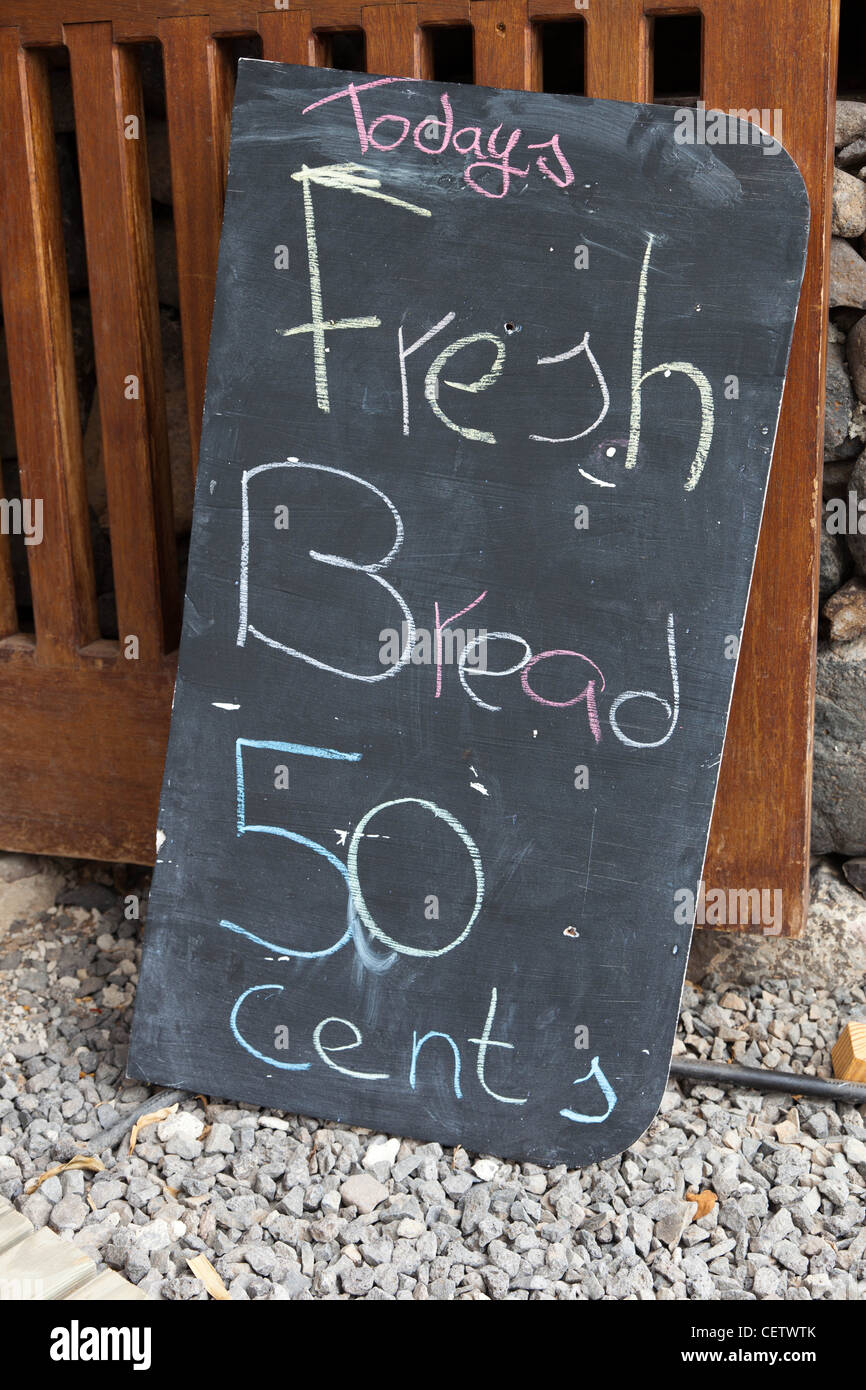 Todays
Fresh
Bread
50
cents
alamy
Image ID: CETWTK
www.alamy.com